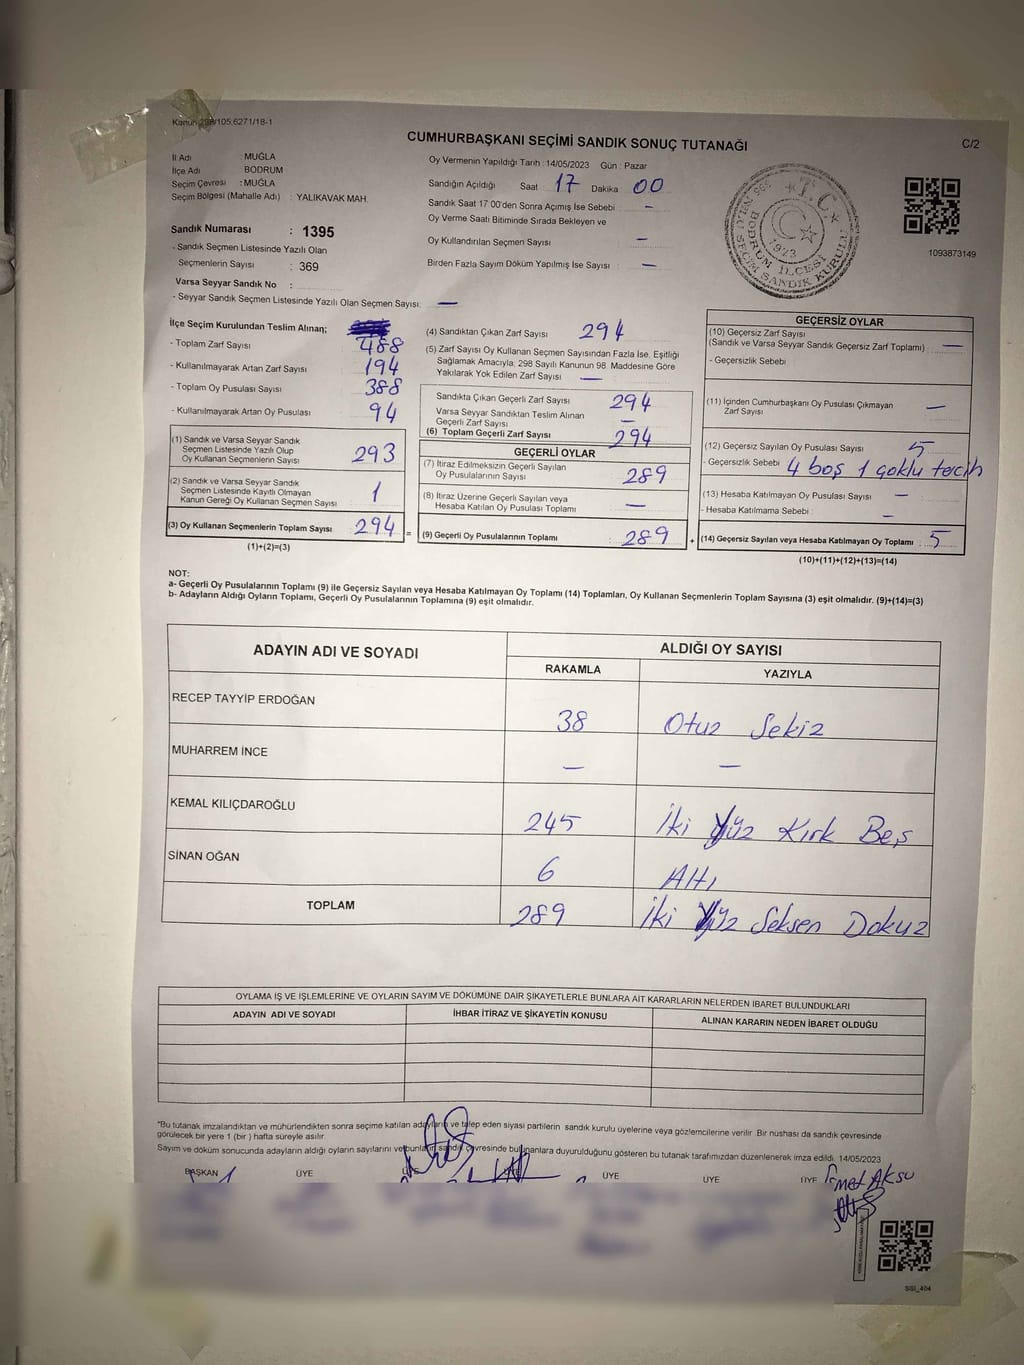 Kanun: 298/105,6271/18-1
CUMHURBAŞKANI SEÇİMİ SANDIK SONUÇ TUTANAĞI
C/2
İl Adı : MUĞLA
İlçe Adı BODRUM
Seçim Çevresi : MUĞLA
Seçim Bölgesi (Mahalle Adı) : YALIKAVAK MAH.
Sandık Numarası : 1395
- Sandık Seçmen Listesinde Yazılı Olan
Seçmenlerin Sayısı : 369
Varsa Seyyar Sandık No :
- Seyyar Sandık Seçmen Listesinde Yazılı Olan Seçmen Sayısı: —
Oy Vermenin Yapıldığı Tarih : 14/05/2023 Gün : Pazar
Sandığın Açıldığı Saat 17 Dakika 00
Sandık Saat 17 00'den Sonra Açımış İse Sebebi —
Oy Verme Saati Bitiminde Sırada Bekleyen ve
Oy Kullandırılan Seçmen Sayısı —
Birden Fazla Sayım Döküm Yapılmış İse Sayısı —
T.C.
1923
BODRUM İLÇESİ
1395 NOLU SEÇİM SANDIK KURULU
1093873149
İlçe Seçim Kurulundan Teslim Alınan;
- Toplam Zarf Sayısı 488
- Kullanılmayarak Artan Zarf Sayısı 194
- Toplam Oy Pusulası Sayısı 388
- Kullanılmayarak Artan Oy Pusulası 94
(1) Sandık ve Varsa Seyyar Sandık
Seçmen Listesinde Yazılı Olup
Oy Kullanan Seçmenlerin Sayısı 293
(2) Sandık ve Varsa Seyyar Sandık
Seçmen Listesinde Kayıtlı Olmayan
Kanun Gereği Oy Kullanan Seçmen Sayısı 1
(3) Oy Kullanan Seçmenlerin Toplam Sayısı 294 =
(1)+(2)=(3)
(4) Sandıktan Çıkan Zarf Sayısı 294
(5) Zarf Sayısı Oy Kullanan Seçmen Sayısından Fazla İse, Eşitliği
Sağlamak Amacıyla; 298 Sayılı Kanunun 98. Maddesine Göre
Yakılarak Yok Edilen Zarf Sayısı —
Sandıkta Çıkan Geçerli Zarf Sayısı 294
Varsa Seyyar Sandıktan Teslim Alınan
Geçerli Zarf Sayısı —
(6) Toplam Geçerli Zarf Sayısı 294
GEÇERLİ OYLAR
(7) İtiraz Edilmeksizin Geçerli Sayılan
Oy Pusulalarının Sayısı 289
(8) İtiraz Üzerine Geçerli Sayılan veya
Hesaba Katılan Oy Pusulası Toplamı —
(9) Geçerli Oy Pusulalarının Toplamı : 289 +
GEÇERSİZ OYLAR
(10) Geçersiz Zarf Sayısı
(Sandık ve Varsa Seyyar Sandık Geçersiz Zarf Toplamı) : —
- Geçersizlik Sebebi :
(11) İçinden Cumhurbaşkanı Oy Pusulası Çıkmayan
Zarf Sayısı —
(12) Geçersiz Sayılan Oy Pusulası Sayısı 5
- Geçersizlik Sebebi 4 boş 1 çoklu tercih
(13) Hesaba Katılmayan Oy Pusulası Sayısı —
- Hesaba Katılmama Sebebi : —
(14) Geçersiz Sayılan veya Hesaba Katılmayan Oy Toplamı : 5
(10)+(11)+(12)+(13)=(14)
NOT:
a- Geçerli Oy Pusulalarının Toplamı (9) ile Geçersiz Sayılan veya Hesaba Katılmayan Oy Toplamı (14) Toplamları, Oy Kullanan Seçmenlerin Toplam Sayısına (3) eşit olmalıdır. (9)+(14)=(3)
b- Adayların Aldığı Oyların Toplamı, Geçerli Oy Pusulalarının Toplamına (9) eşit olmalıdır.
ADAYIN ADI VE SOYADI ALDIĞI OY SAYISI
RAKAMLA YAZIYLA
RECEP TAYYİP ERDOĞAN 38 Otuz Sekiz
MUHARREM İNCE — —
KEMAL KILIÇDAROĞLU 245 İki Yüz Kırk Beş
SİNAN OĞAN 6 Altı
TOPLAM 289 İki Yüz Seksen Dokuz
OYLAMA İŞ VE İŞLEMLERİNE VE OYLARIN SAYIM VE DÖKÜMÜNE DAİR ŞİKAYETLERLE BUNLARA AİT KARARLARIN NELERDEN İBARET BULUNDUKLARI
ADAYIN ADI VE SOYADI İHBAR İTİRAZ VE ŞİKAYETİN KONUSU ALINAN KARARIN NEDEN İBARET OLDUĞU
*Bu tutanak imzalandıktan ve mühürlendikten sonra seçime katılan adayların ve talep eden siyasi partilerin sandık kurulu üyelerine veya gözlemcilerine verilir. Bir nüshası da sandık çevresinde
görülecek bir yere 1 (bir) hafta süreyle asılır.
Sayım ve döküm sonucunda adayların aldığı oyların sayılarını ve bunların sandık çevresinde bulunanlara duyurulduğunu gösteren bu tutanak tarafımızdan düzenlenerek imza edildi. 14/05/2023
BAŞKAN ÜYE ÜYE ÜYE ÜYE ÜYE ÜYE
Aksu
SSI_404